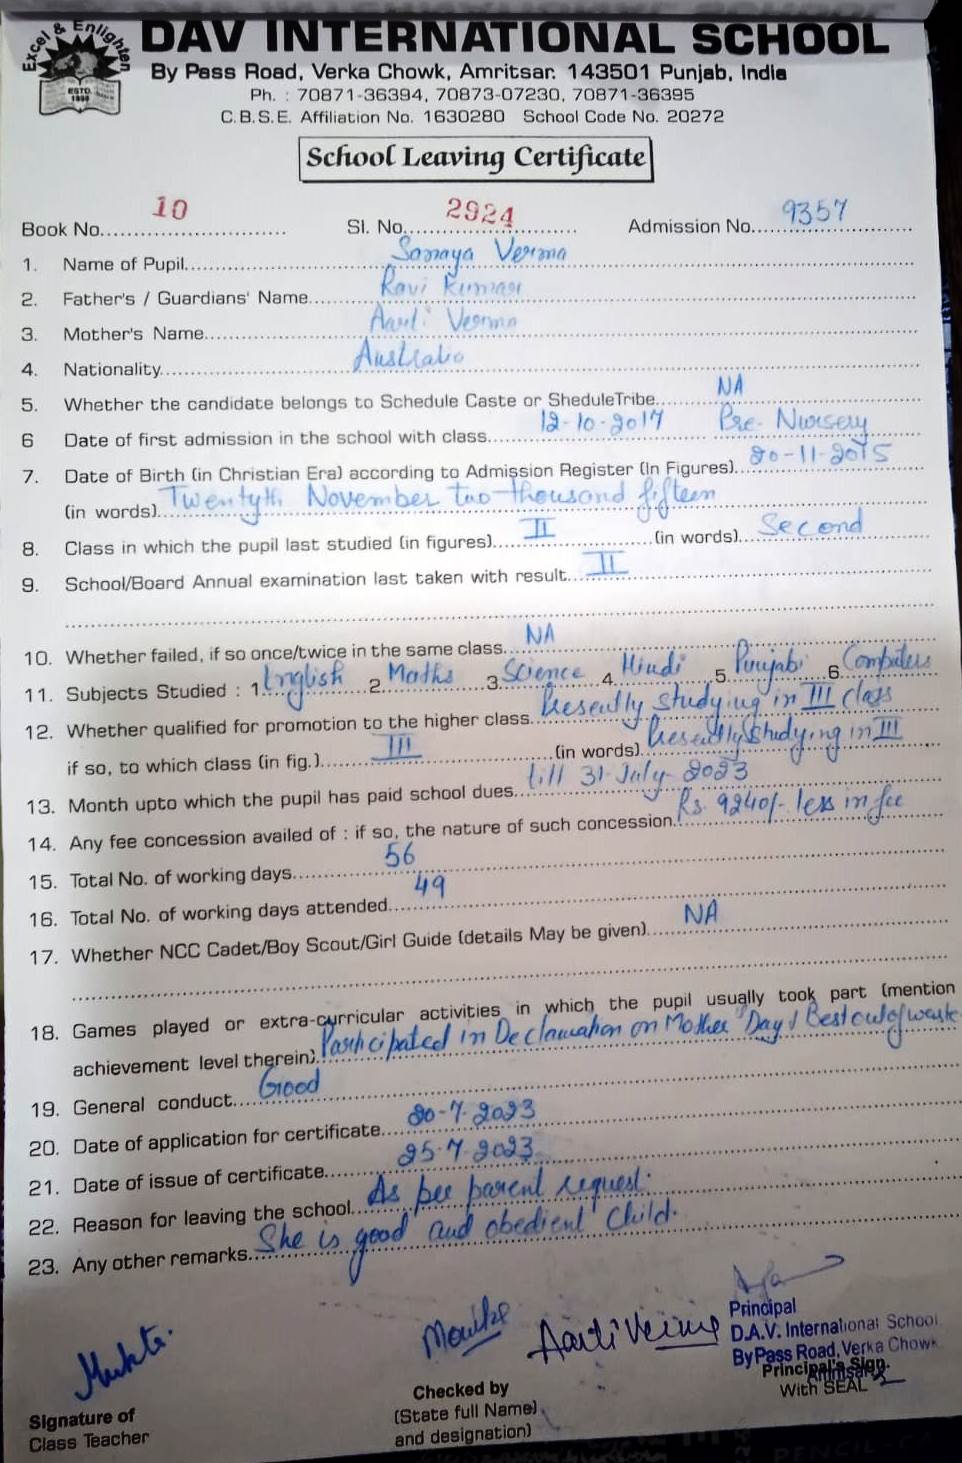 Excel & Enlighten
ESTD.
DAV INTERNATIONAL SCHOOL
By Pass Road, Verka Chowk, Amritsar. 143501 Punjab, India
Ph. : 70871-36394, 70873-07230, 70871-36395
C.B.S.E. Affiliation No. 1630280 School Code No. 20272
School Leaving Certificate
Book No. 10 Sl. No. 2924 Admission No. 9357
1. Name of Pupil Samaya Verma
2. Father's / Guardians' Name Ravi Kumar
3. Mother's Name Aarti Verma
4. Nationality Australia
5. Whether the candidate belongs to Schedule Caste or SheduleTribe NA
6 Date of first admission in the school with class 12-10-2017 Pre-Nursery
7. Date of Birth (in Christian Era) according to Admission Register (In Figures) 20-11-2015
(in words) Twentyth November two thousand fifteen
8. Class in which the pupil last studied (in figures) II (in words) Second
9. School/Board Annual examination last taken with result II
10. Whether failed, if so once/twice in the same class NA
11. Subjects Studied : 1. English 2. Maths 3. Science 4. Hindi 5. Punjabi 6. Computers
12. Whether qualified for promotion to the higher class Presently studying in III class
if so, to which class (in fig.) III (in words) Presently studying in III
13. Month upto which the pupil has paid school dues till 31-July-2023
14. Any fee concession availed of : if so, the nature of such concession Rs. 9240/- less in fee
15. Total No. of working days 56
16. Total No. of working days attended 49
17. Whether NCC Cadet/Boy Scout/Girl Guide (details May be given) NA
18. Games played or extra-curricular activities in which the pupil usually took part (mention
achievement level therein) Participated in Declamation on Mother Day / Best out of waste
19. General conduct Good
20. Date of application for certificate 20-7-2023
21. Date of issue of certificate 25-7-2023
22. Reason for leaving the school As per parent request.
23. Any other remarks She is good and obedient child.
Mukta
Aarti Verma
Principal
D.A.V. International School
By Pass Road, Verka Chowk
Amritsar
Principal's Sign.
With SEAL
Checked by
(State full Name)
and designation)
Signature of
Class Teacher